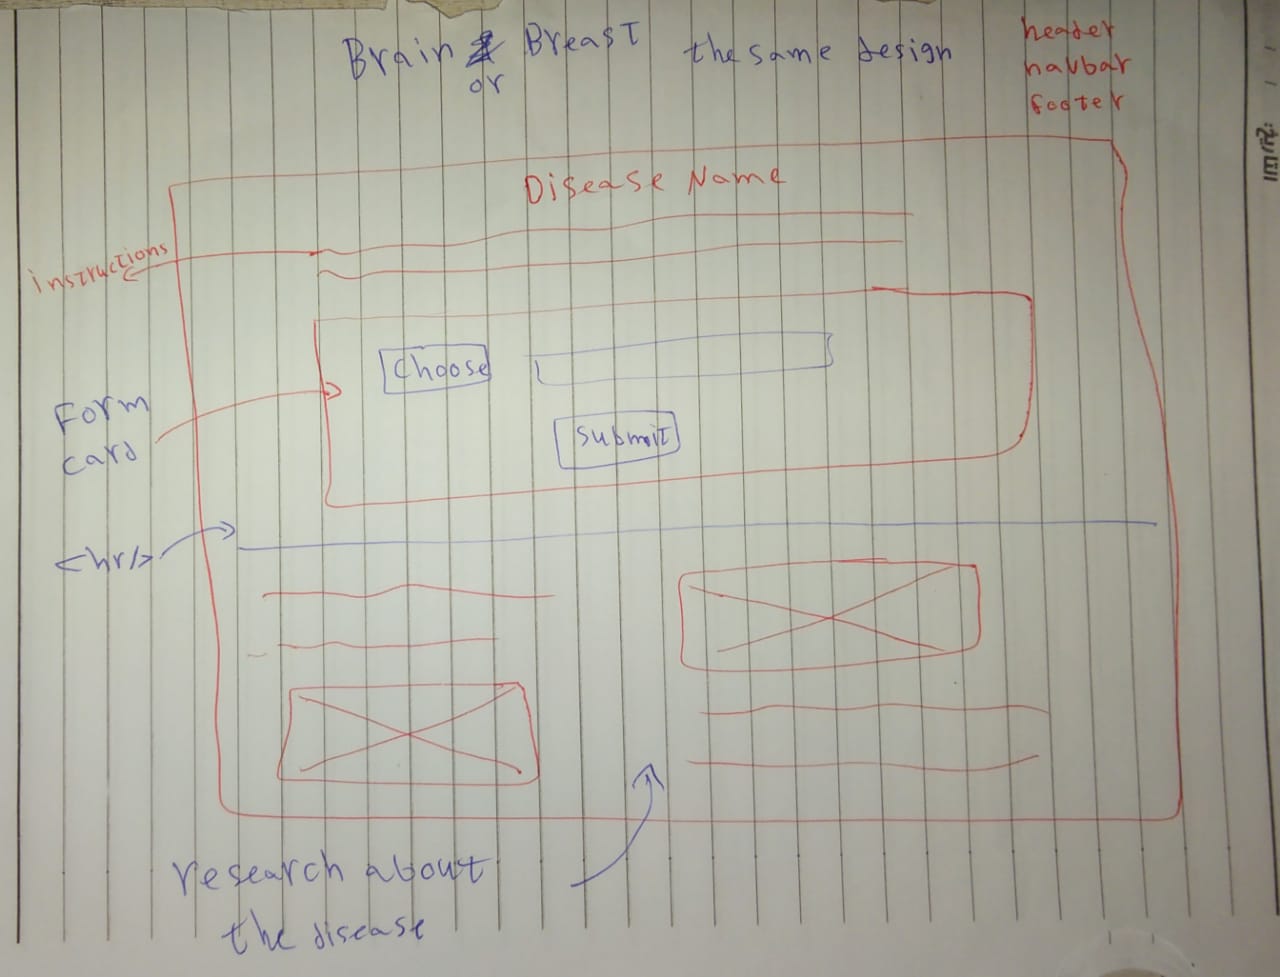 Brain or Breast the same design
header
navbar
footer
التاريخ:
Disease Name
instructions
Choose
Form
card
submit
<hr/>
research about
the disease